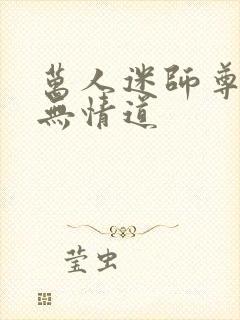 萬人迷師尊
無情道
莹虫